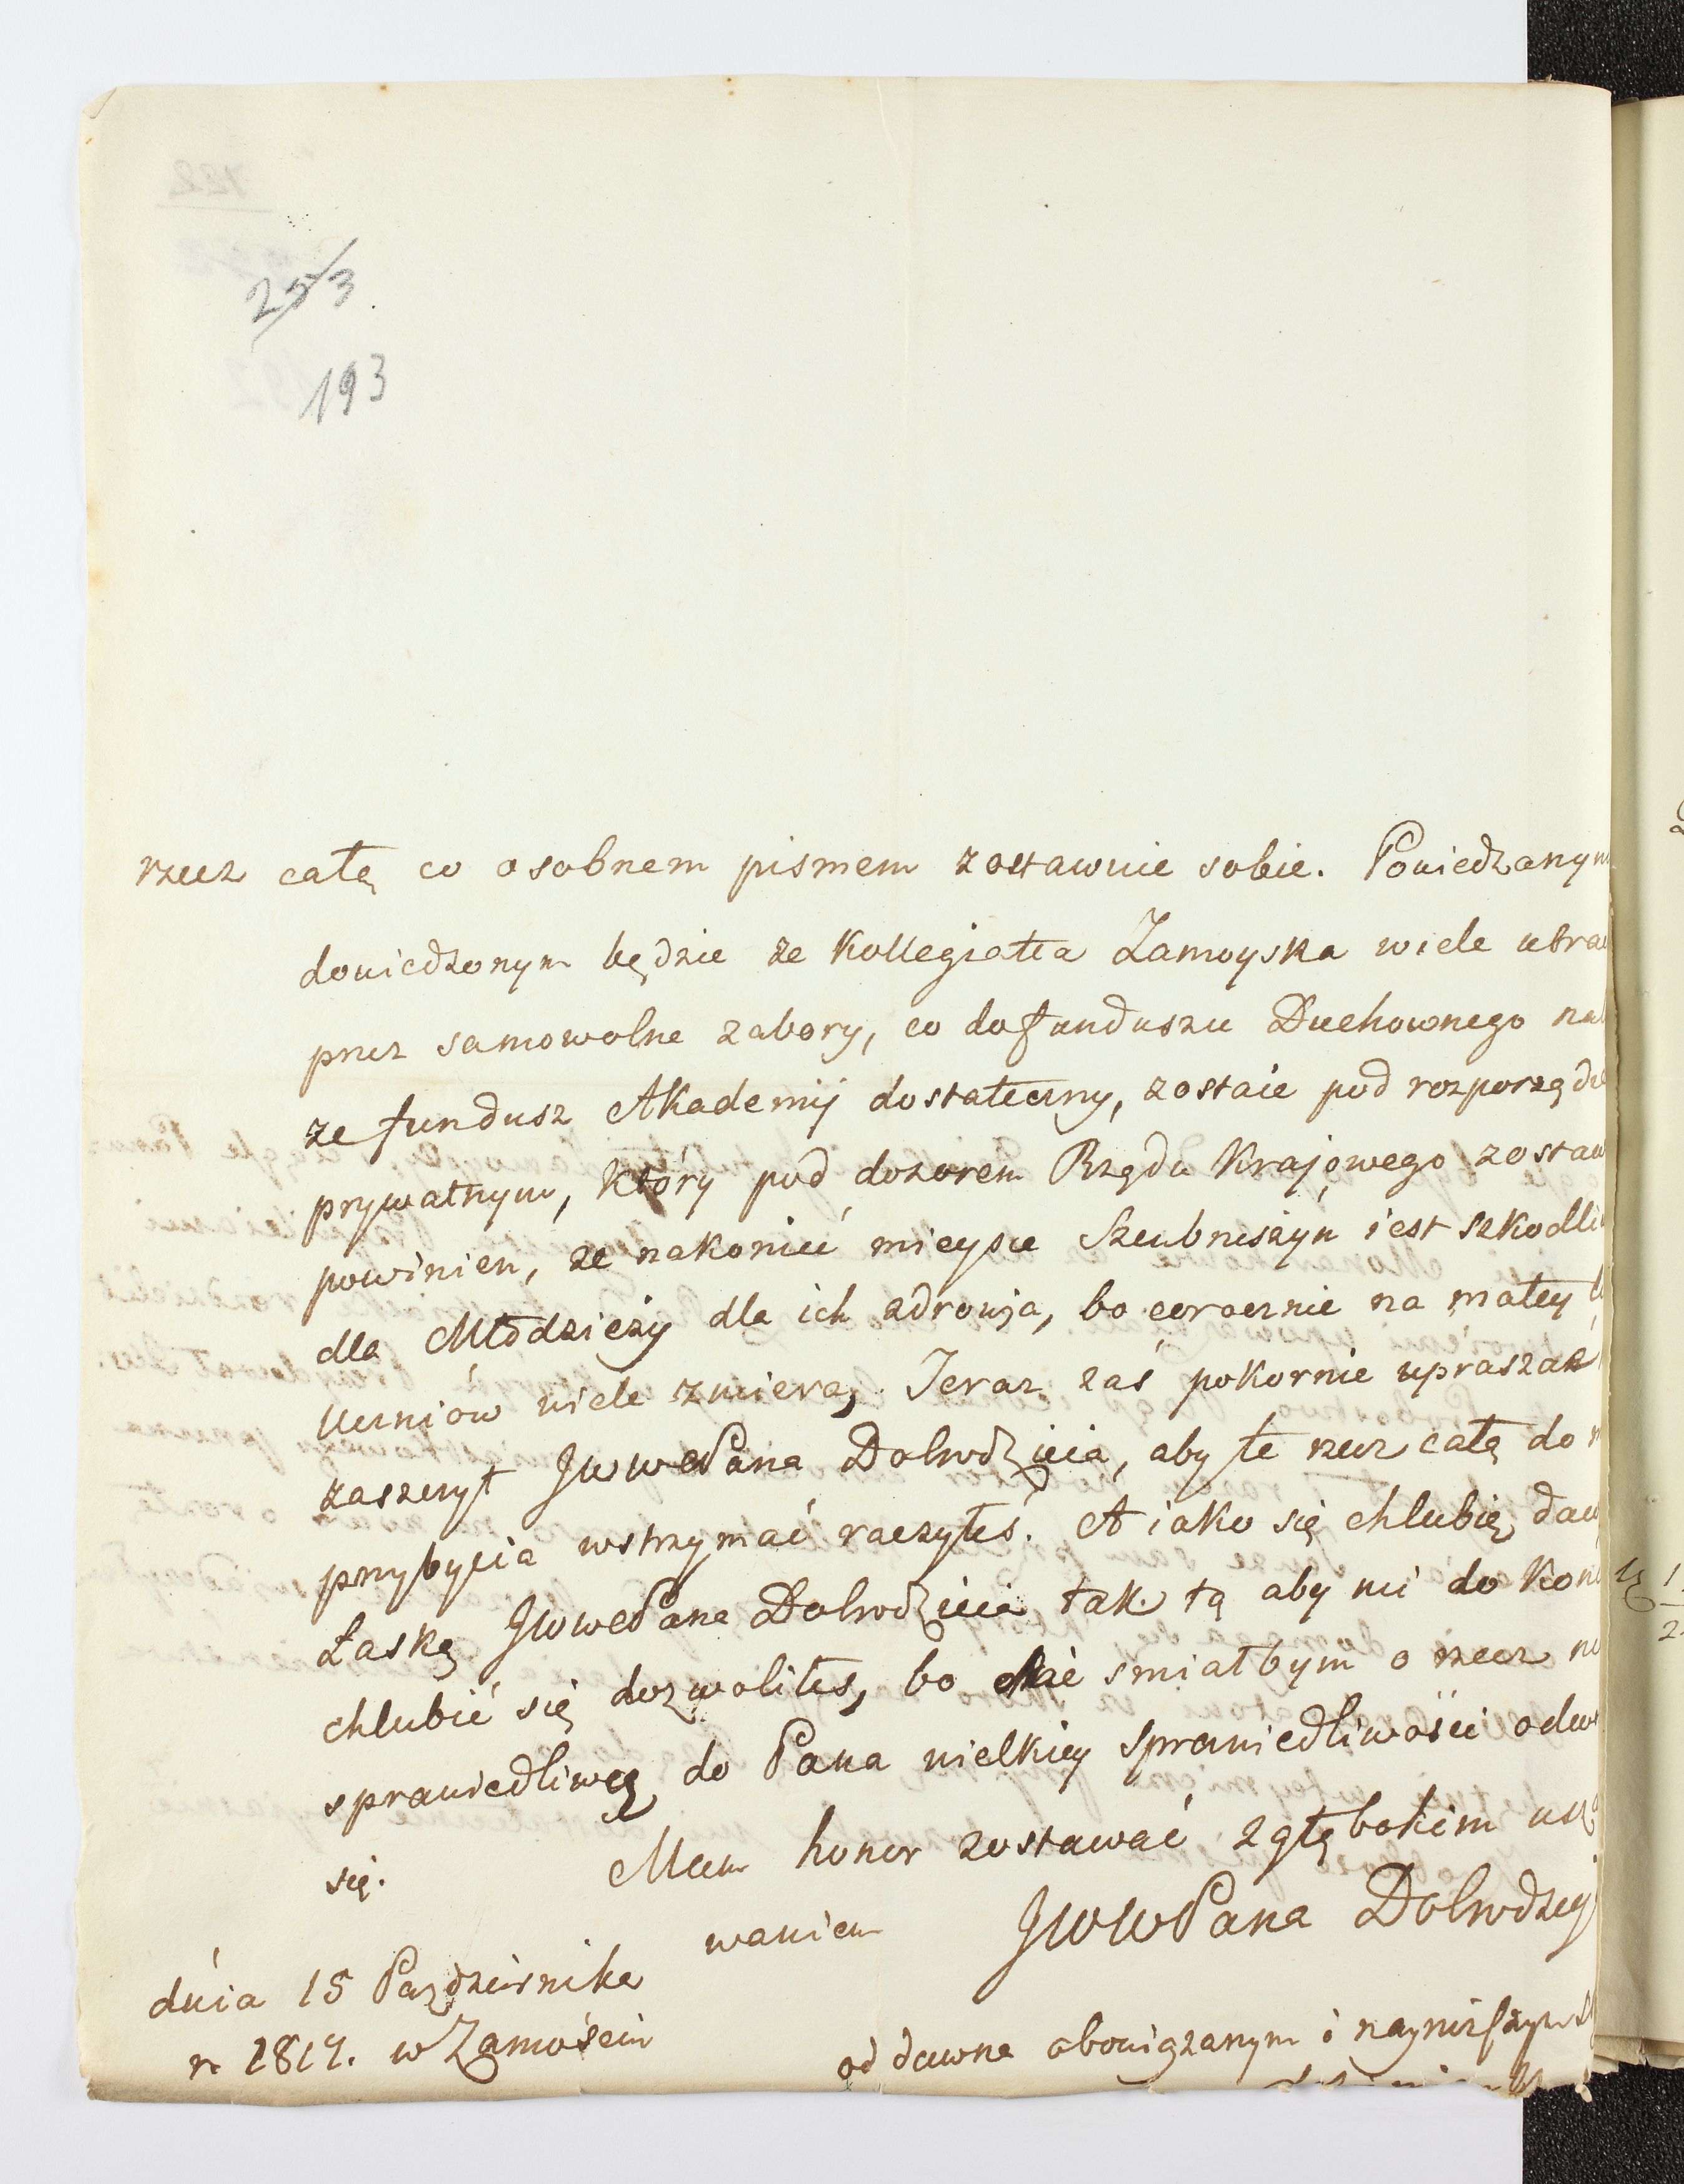 253
193
rzecz całą co osobnem pismem zostawuie sobie. Powiedzanym
dowiedzonym będzie że Kollegiatta Zamoyska wiele utra
przez samowolne zabory, co do funduszu Duchownego
że fundusz Akademij dostateczny, zostaie pod rozporządze
prywatnym, który pod dozorem Rządu Krajowego zostaw
powinien, że nakonieć mieysce Szcubrzeszyn iest szkodli
dla Młodzieży dla ich zdrowja, bo corocznie na małey
Uczniów wiele zmiera, Teraz zaś pokornie upraszać
zaszczyt JWWePana Dobrodzieia, aby te rzecz całą do
przybycia wstrzymać raczyłeś. A iako się chlubię daw
Łaską JWWePana Dobrodzieia tak tą aby mi do koń
chlubić się dozwoliłeś, bo nie smiałbym o rzecz nie
sprawiedliwą do Pana wielkiey sprawiedliwości odwo
się. Mam honor zostawać z głębokim usza
waniem JWWPana Dobrodziej
dńia 15 Pazdziernika
r. 1817. w Zamościu
od dawna obowiązanym i nayniższym